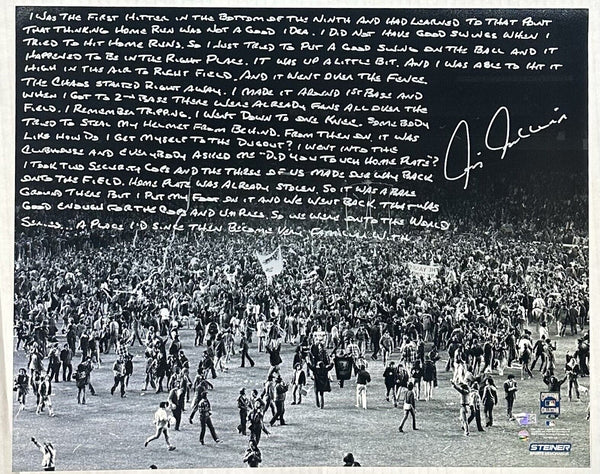 I WAS THE FIRST HITTER IN THE BOTTOM OF THE NINTH AND HAD LEARNED TO THAT POINT
THAT THINKING HOME RUN WAS NOT A GOOD IDEA. I DID NOT HAVE GOOD SWINGS WHEN I
TRIED TO HIT HOME RUNS. SO I JUST TRIED TO PUT A GOOD SWING ON THE BALL AND IT
HAPPENED TO BE IN THE RIGHT PLACE. IT WAS UP A LITTLE BIT. AND I WAS ABLE TO HIT IT
HIGH IN THE AIR TO RIGHT FIELD. AND IT WENT OVER THE FENCE.
THE CHAOS STARTED RIGHT AWAY. I MADE IT AROUND 1ST BASE AND
WHEN I GOT TO 2ND BASE THERE WERE ALREADY FANS ALL OVER THE
FIELD. I REMEMBER TRIPPING. I WENT DOWN TO ONE KNEE. SOMEBODY
TRIED TO STEAL MY HELMET FROM BEHIND. FROM THEN ON, IT WAS
LIKE HOW DO I GET MYSELF TO THE DUGOUT? I WENT INTO THE
CLUBHOUSE AND EVERYBODY ASKED ME "DID YOU TOUCH HOME PLATE?
I TOOK TWO SECURITY COPS AND THE THREE OF US MADE OUR WAY BACK
ONTO THE FIELD. HOME PLATE WAS ALREADY STOLEN. SO IT WAS BARE
GROUND THERE BUT I PUT MY FOOT ON IT AND WE WENT BACK. THAT WAS
GOOD ENOUGH FOR THE COPS AND UMPIRES. SO WE WERE ONTO THE WORLD
SERIES... A PLACE I'D SINCE THEN BECOME VERY FAMILIAR WITH
STEINER
SPORTS MEMORABILIA